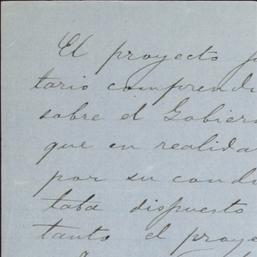 El proyecto
tario comprend
sobre el Gobier
que en realida
por su cond
taba dispuesto
tanto el proye